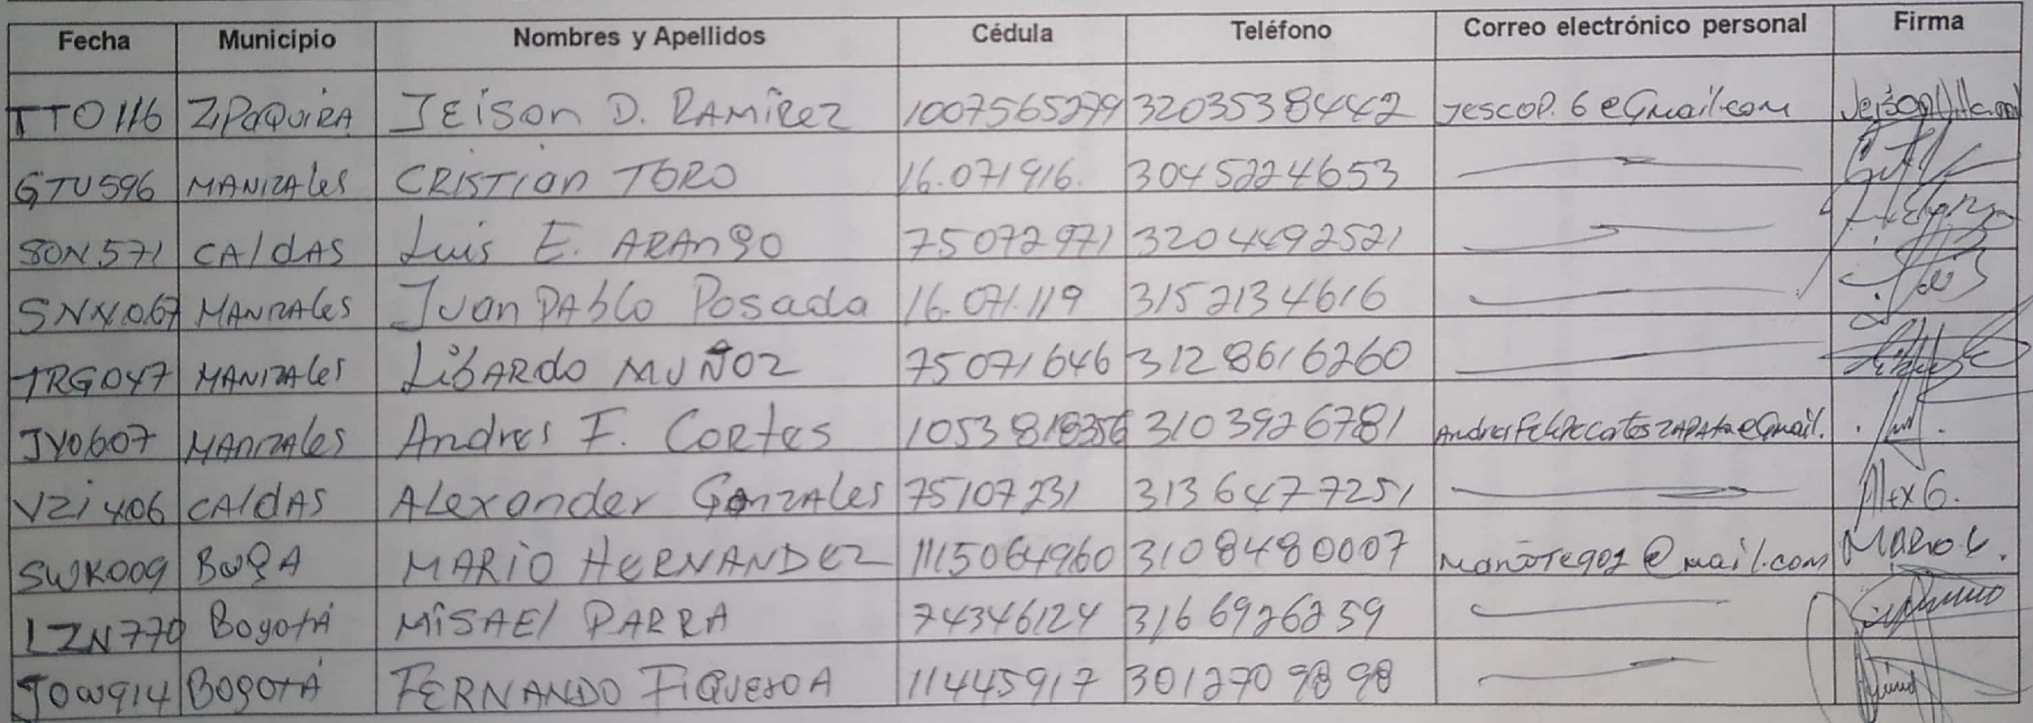 Fecha Municipio Nombres y Apellidos Cédula Teléfono Correo electrónico personal Firma
TTO116 ZIPAQUIRA JEISON D. RAMIREZ 1007565279 3203538442 Jescop.6@Gmail.com
GTU596 MANIZALES CRISTIAN TORO 16.071916. 3045224653
SON571 CALDAS Luis E. ARANGO 75072971 3204492521
SNX067 MANIZALES Juan PABLO Posada 16.071.119 3152134616
TRG047 MANIZALES LIBARDO MUÑOZ 75071646 3128616260
JYO607 MANIZALES Andres F. Cortes 1053818356 3103926781 AndresFelipeCortesZAPATA@Gmail.
VZI406 CALDAS ALexander GonZALes 75107231 3136477251 Alex G.
SWK009 BUGA MARIO HERNANDEZ 1115064960 3108480007 @mail.com MARIO.
LZN770 Bogotá MISAEL PARRA 74346124 3166926259
JOW914 BOgOTÁ FERNANDO FIGUEROA 11445917 3012709898